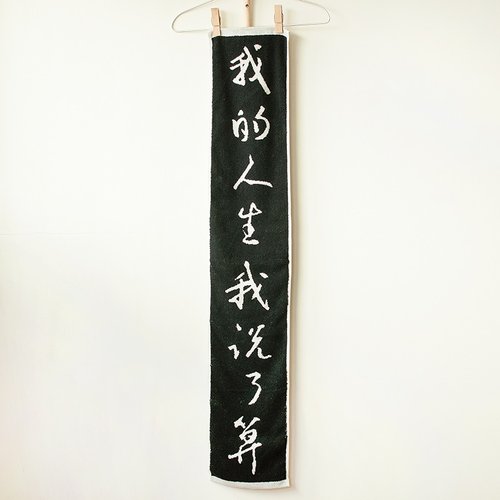 我的人生我说了算